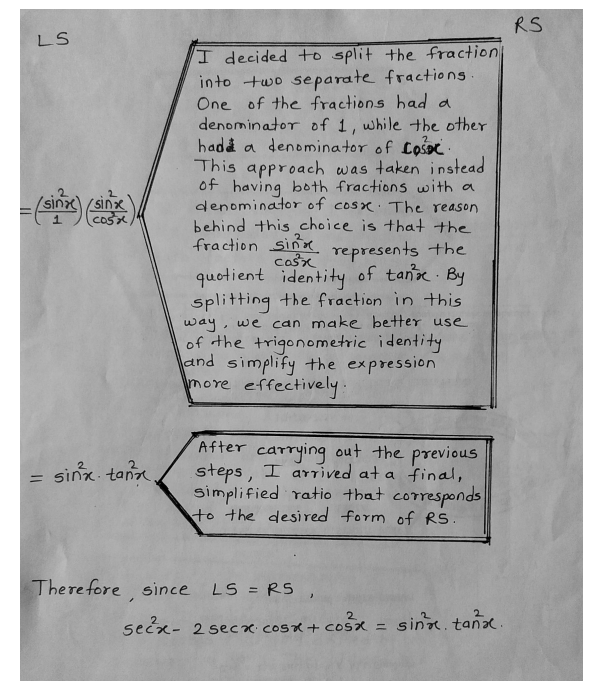 LS RS
I decided to split the fraction
into two separate fractions.
One of the fractions had a
denominator of 1, while the other
had a denominator of cos²x.
This approach was taken instead
of having both fractions with a
denominator of cosx. The reason
behind this choice is that the
fraction sin²x/cos²x represents the
quotient identity of tan²x. By
splitting the fraction in this
way, we can make better use
of the trigonometric identity
and simplify the expression
more effectively.
= (sin²x/1) (sin²x/cos²x)
After carrying out the previous
steps, I arrived at a final,
simplified ratio that corresponds
to the desired form of RS.
= sin²x. tan²x
Therefore, since LS = RS,
sec²x - 2 secx·cosx + cos²x = sin²x. tan²x.